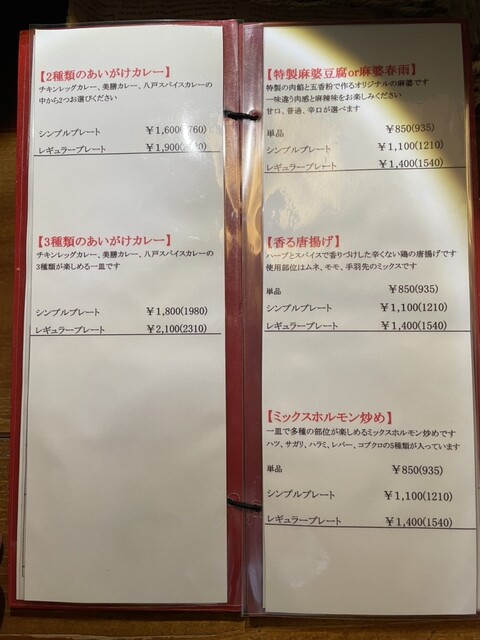 【2種類のあいがけカレー】
チキンレッグカレー、美勝カレー、八戸スパイスカレーの
中から2つお選びください
シンプルプレート ￥1,600(1760)
レギュラープレート ￥1,900
【3種類のあいがけカレー】
チキンレッグカレー、美勝カレー、八戸スパイスカレーの
3種類が楽しめる一皿です
シンプルプレート ￥1,800(1980)
レギュラープレート ￥2,100(2310)
【特製麻婆豆腐or麻婆春雨】
特製の肉餡と五香粉で作るオリジナルの麻婆です
一味違う肉感と麻辣味をお楽しみください
甘口、普通、辛口が選べます
単品 ￥850(935)
シンプルプレート ￥1,100(1210)
レギュラープレート ￥1,400(1540)
【香る唐揚げ】
ハーブとスパイスで香りづけした辛くない鶏の唐揚げです
使用部位はムネ、モモ、手羽先のミックスです
単品 ￥850(935)
シンプルプレート ￥1,100(1210)
レギュラープレート ￥1,400(1540)
【ミックスホルモン炒め】
一皿で多種の部位が楽しめるミックスホルモン炒めです
ハツ、サガリ、ハラミ、レバー、コブクロの5種類が入っています
単品 ￥850(935)
シンプルプレート ￥1,100(1210)
レギュラープレート ￥1,400(1540)